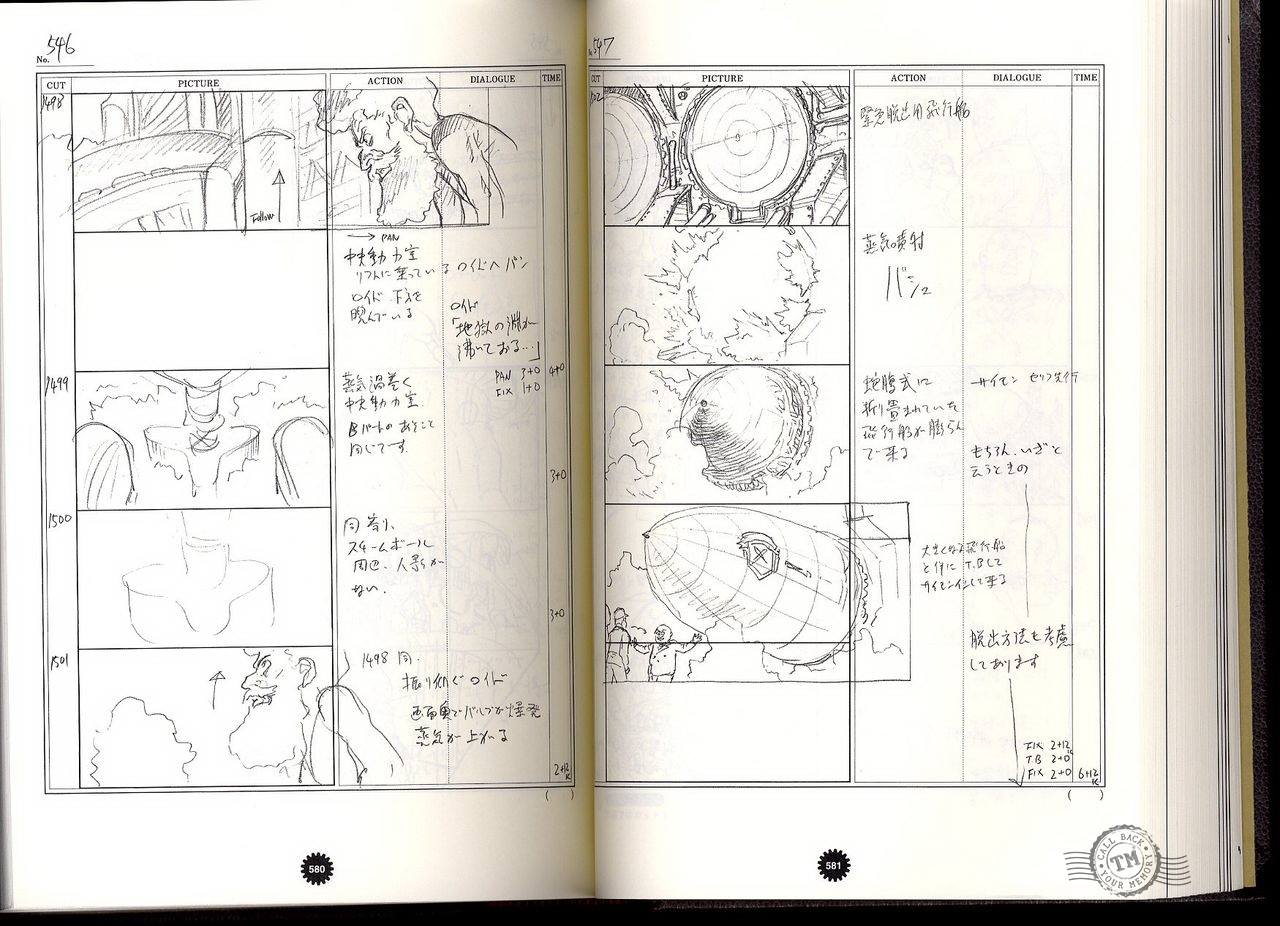 No. 546
CUT PICTURE ACTION DIALOGUE TIME
1498
Follow
→ PAN
中央動力室
リフトに乗っているロイドへパン
ロイド 下方を
睨んでいる
ロイド
「地獄の淵が
沸いておる…」
PAN 3+0
FIX 1+0
4+0
1499
蒸気渦巻く
中央動力室
Bパートのあそこと
同じです。
3+0
1500
同寄り、
スチームボール
周辺、人影が
ない。
3+0
1501
1498 同.
振り仰ぐロイド
画面奥でバルブが爆発
蒸気が上がる
2+12
K
( )
580
547
CUT PICTURE ACTION DIALOGUE TIME
緊急脱出用飛行船
蒸気噴射
蛇腹式に
折り畳まれていた
飛行船が膨らん
で来る
サイモン セリフ先行
もちろん、いざと
云うときの
大きくなる飛行船
と伴に T.Bして
サイモンインして来る
脱出方法も考慮
しております
FIX 2+12
T.B 2+0
FIX 2+0
6+12
K
( )
581
CALL BACK
TM
YOUR MEMORY